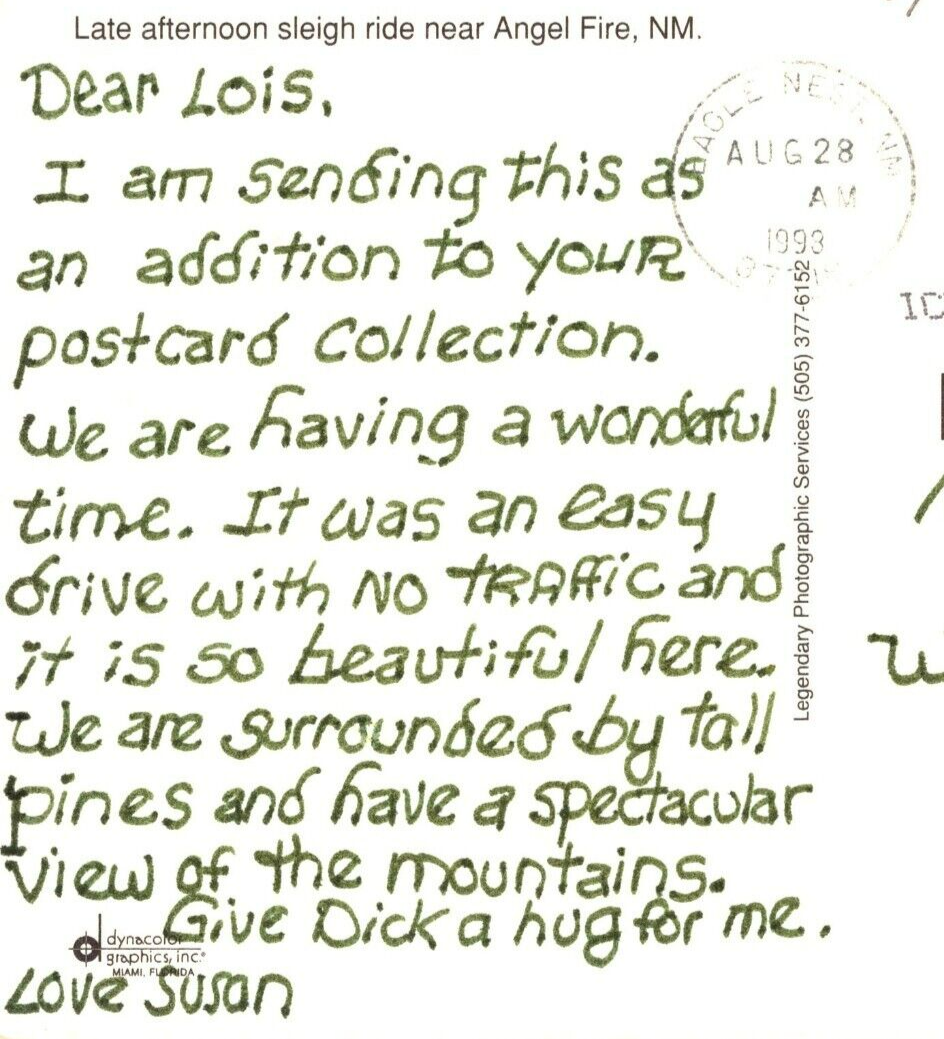 Late afternoon sleigh ride near Angel Fire, NM.
Dear Lois,
I am sending this as
an addition to youR
postcard collection.
We are having a wonderful
time. It was an easy
drive with NO TRAffic and
it is so beautiful here.
We are surrounded by tall
pines and have a spectacular
view of the mountains.
Give Dick a hug for me.
Love Susan
EAGLE NEST, NM
AUG 28
AM
1993
Legendary Photographic Services (505) 377-6152
dynacolor
graphics, inc.
MIAMI, FLORIDA